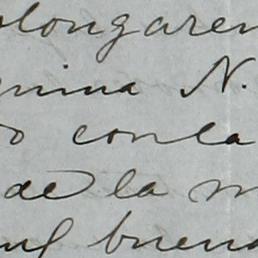 olongaren
nina N.
o con la
de la m
buena